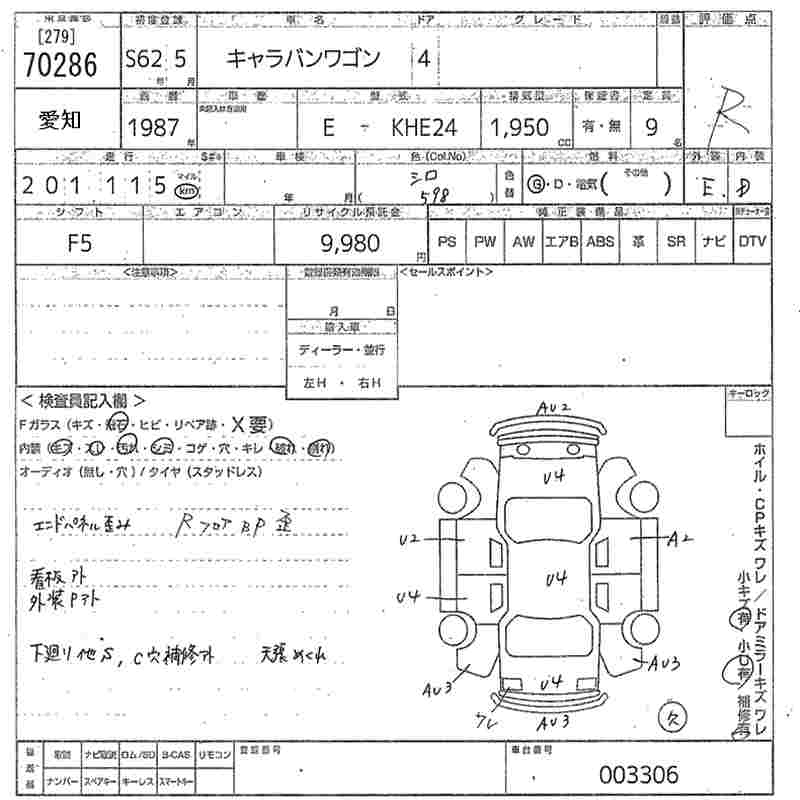 [279]
70286
S62 5
年 月
車名
キャラバンワゴン
ドア
4
グレード
評価点
R
愛知
1987
年
型式
E - KHE24
排気量
1,950
CC
保証書
有・無
定員
9
名
走行
201 115
マイル
km
車検
年 月
色(Col.No)
シロ
598
色替
燃料
G・D・電気( その他 )
外装
E
内装
D
シフト
F5
エアコン
リサイクル預託金
9,980
円
純正装備品
PS PW AW エアB ABS 革 SR ナビ DTV
<注意事項>
月 日
輸入車
ディーラー・並行
左H・右H
<セールスポイント>
<検査員記入欄>
Fガラス(キズ・飛石・ヒビ・リペア跡・X要)
内装(キズ・スレ・汚れ・シミ・コゲ・穴・キレ・破れ・割れ)
オーディオ(無し・穴)/タイヤ(スタッドレス)
エンドパネル歪み RフロアBP歪
看板アト
外装Pアト
下廻り他S, C穴補修アト 天張めくれ
キーロック
ホイル・CPキズワレ/ドアミラーキズワレ
小キズ有/小凹有/補修有
AU2
U4
U2
A2
U4
U4
AU3
AU3
U4
ワレ
AU3
欠
取説 ナビ取説 ロム/SD B-CAS リモコン
ナンバー スペアキー キーレス スマートキー
登録番号
車台番号
003306